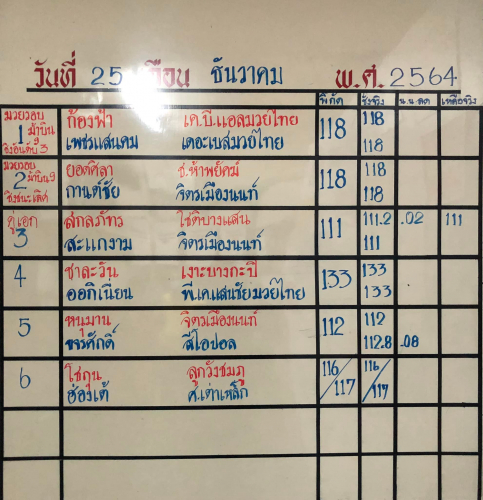 วันที่ 25 เดือน ธันวาคม พ.ศ. 2564
พิกัด ชั่งจริง น.น.ลด เหลือจริง
มวยรอบ ก้องฟ้า เค.บี.แอลมวยไทย 118 118
1 เพชรแสนคม เดอะเบสมวยไทย 118
ชิงอันดับ 3
มวยรอบ ยอดศิลา ช.ห้าพยัคฆ์ 118 118
2 กานต์ชัย จิตรเมืองนนท์ 118
ชิงชนะเลิศ
คู่เอก สกลภัทร โชติบางแสน 111 111.2 .02 111
3 สะแกงาม จิตรเมืองนนท์ 111
4 ชาละวัน เงาะบางกะปิ 133 133
ออกิเนียน พี.เค.แสนชัยมวยไทย 133
5 หนุมาน จิตรเมืองนนท์ 112 112
ขจรศักดิ์ สีโอปอล 112.8 .08
6 โชกุน ลูกวังชมภู 116/117 116/117
ฮ่องเต้ ศ.เต่าเหล็ก